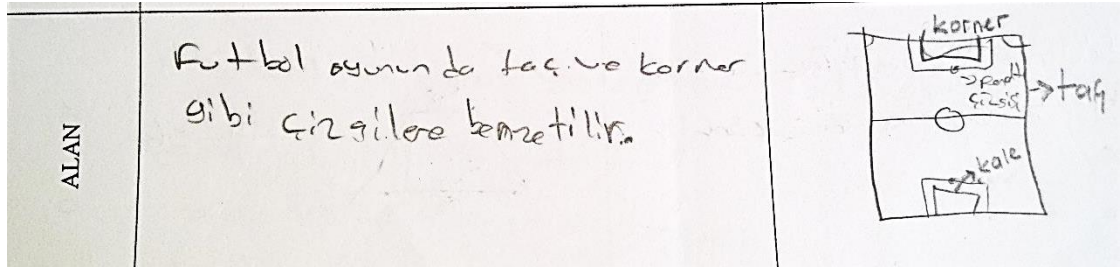 ALAN
Futbol oyununda taç ve korner
gibi çizgilere benzetilir.
korner
çizgisi
taç
kale